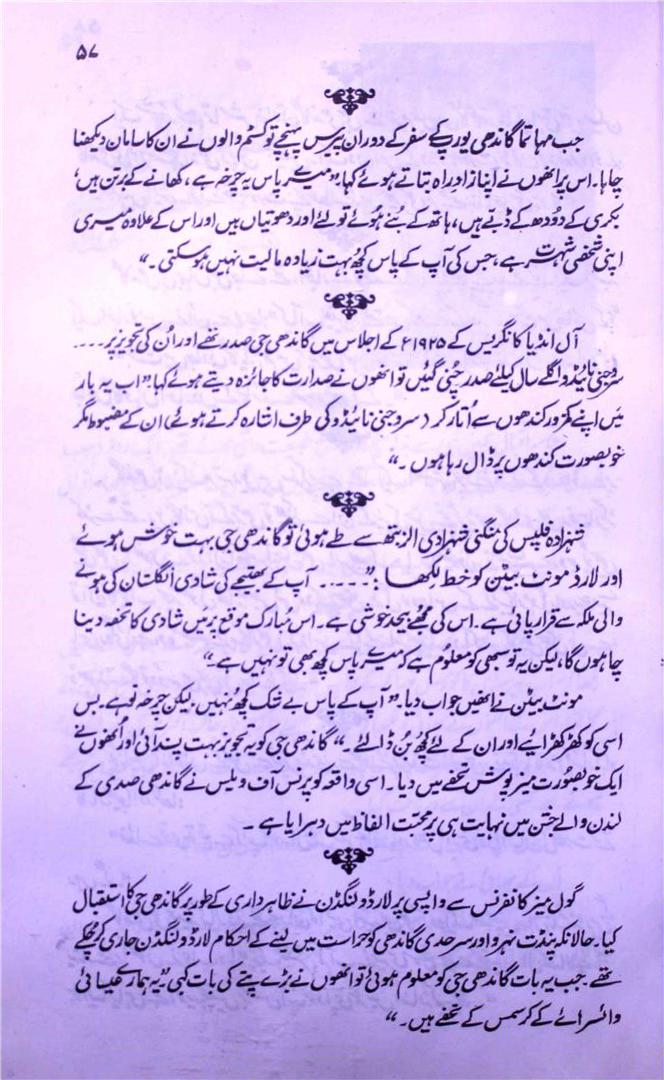 ۵۷
جب مہاتما گاندھی یورپ کے سفر کے دوران پیرس پہنچے تو کسٹم والوں نے ان کا سامان دیکھنا
چاہا۔ اس پر انھوں نے اپنا زادِ راہ بتاتے ہوئے کہا "میرے پاس یہ چرخہ ہے، کھانے کے برتن ہیں،
بکری کے دودھ کے ڈبّے ہیں، ہاتھ کے بُنے ہوئے تولئے اور دھوتیاں ہیں اور اس کے علاوہ میری
اپنی شخصی شہرت ہے، جس کی آپ کے پاس کچھ بہت زیادہ مالیت نہیں ہو سکتی۔"
آل انڈیا کانگریس کے ۱۹۲۵ء کے اجلاس میں گاندھی جی صدر تھے اور اُن کی تجویز پر ....
سروجنی نائیڈو اگلے سال کیلئے صدر چُنی گئیں تو انھوں نے صدارت کا جائزہ دیتے ہوئے کہا "اب یہ بار
میں اپنے کمزور کندھوں سے اُتار کر (سروجنی نائیڈو کی طرف اشارہ کرتے ہوئے) ان کے مضبوط مگر
خوبصورت کندھوں پر ڈال رہا ہوں۔"
شہزادہ فلپس کی منگنی شہزادی الزبتھ سے طے ہوئی تو گاندھی جی بہت خوش ہوئے
اور لارڈ مونٹ بیٹن کو خط لکھا: "..... آپ کے بھتیجے کی شادی انگلستان کی ہونے
والی ملکہ سے قرار پائی ہے۔ اس کی مجھے بیحد خوشی ہے۔ اس مُبارک موقع پر میں شادی کا تحفہ دینا
چاہوں گا، لیکن یہ تو سبھی کو معلوم ہے کہ میرے پاس کچھ بھی تو نہیں ہے۔"
مونٹ بیٹن نے انھیں جواب دیا۔ "آپ کے پاس بے شک کچھ نہیں۔ لیکن چرخہ تو ہے۔ بس
اسی کو کھڑکھڑائیے اور ان کے لئے کچھ بُن ڈالئے۔" گاندھی جی کو یہ تجویز بہت پسند آئی اور اُنھوں نے
ایک خوبصورت میز پوش تحفے میں دیا۔ اسی واقعہ کو پرنس آف ویلس نے گاندھی صدی کے
لندن والے جشن میں نہایت ہی پر محبت الفاظ میں دہرایا ہے۔
گول میز کانفرنس سے واپسی پر لارڈ ولنگڈن نے ظاہر داری کے طور پر گاندھی جی کا استقبال
کیا۔ حالانکہ پنڈت نہرو اور سرحدی گاندھی کو حراست میں لینے کے احکام لارڈ ولنگڈن جاری کر چکے
تھے۔ جب یہ بات گاندھی جی کو معلوم ہوئی تو انھوں نے بڑے پتے کی بات کہی "یہ ہمارے عیسائی
وائسرائے کے کرسمس کے تحفے ہیں۔"